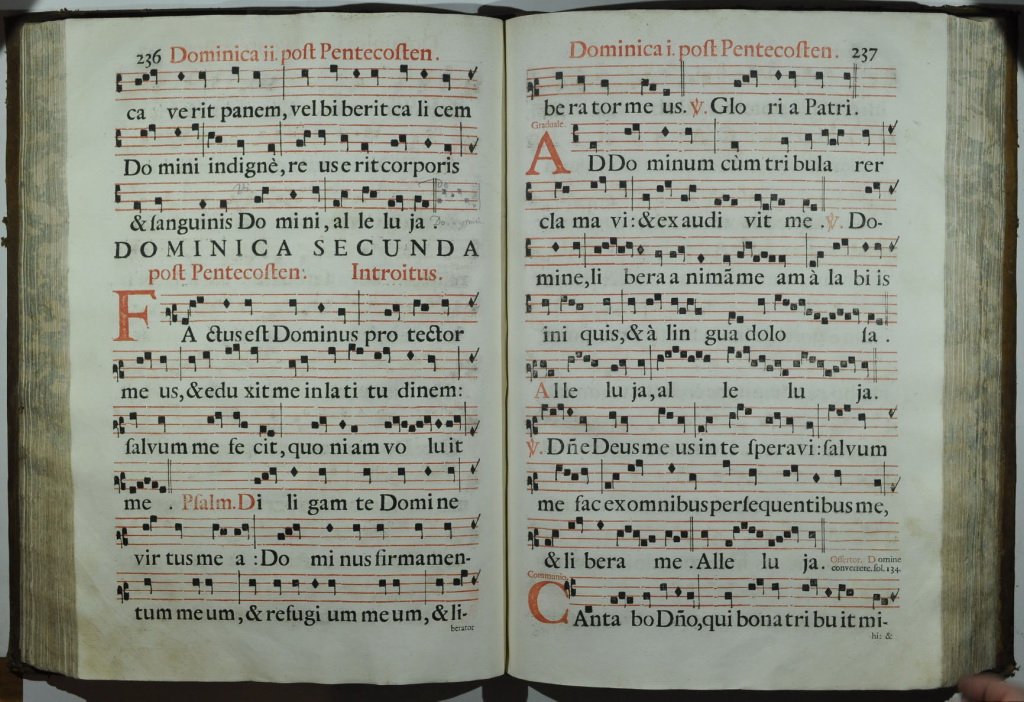 236 Dominica ii. poſt Pentecoſten.
ca ve rit panem, vel bi berit ca li cem
Do mini indignè, re us e rit corporis
& ſanguinis Do mi ni, al le lu ja.
DOMINICA SECUNDA
poſt Pentecoſten. Introitus.
FA ctus eſt Dominus pro tector
me us, & edu xit me in la ti tu dinem:
ſalvum me fe cit, quo ni am vo lu it
me. Pſalm. Di li gam te Domi ne
vir tus me a: Do mi nus firmamen-
tum me um, & refugi um me um, & li-
berator
Dominica i. poſt Pentecoſten. 237
be ra tor me us. ℣. Glo ri a Patri.
Graduale.
AD Do minum cùm tri bula rer
cla ma vi: & ex audi vit me. ℣. Do-
mine, li bera a nimã me am à la bi is
ini quis, & à lin gua dolo ſa.
Alle lu ja, al le lu ja.
℣. Dñe Deus me us in te ſperavi: ſalvum
me fac ex omnibus perſequentibus me,
& li bera me. Alle lu ja. Offertor. Domine
convertere. fol. 134.
Communio.
CAnta bo Dño, qui bona tri bu it mi-
hi: &